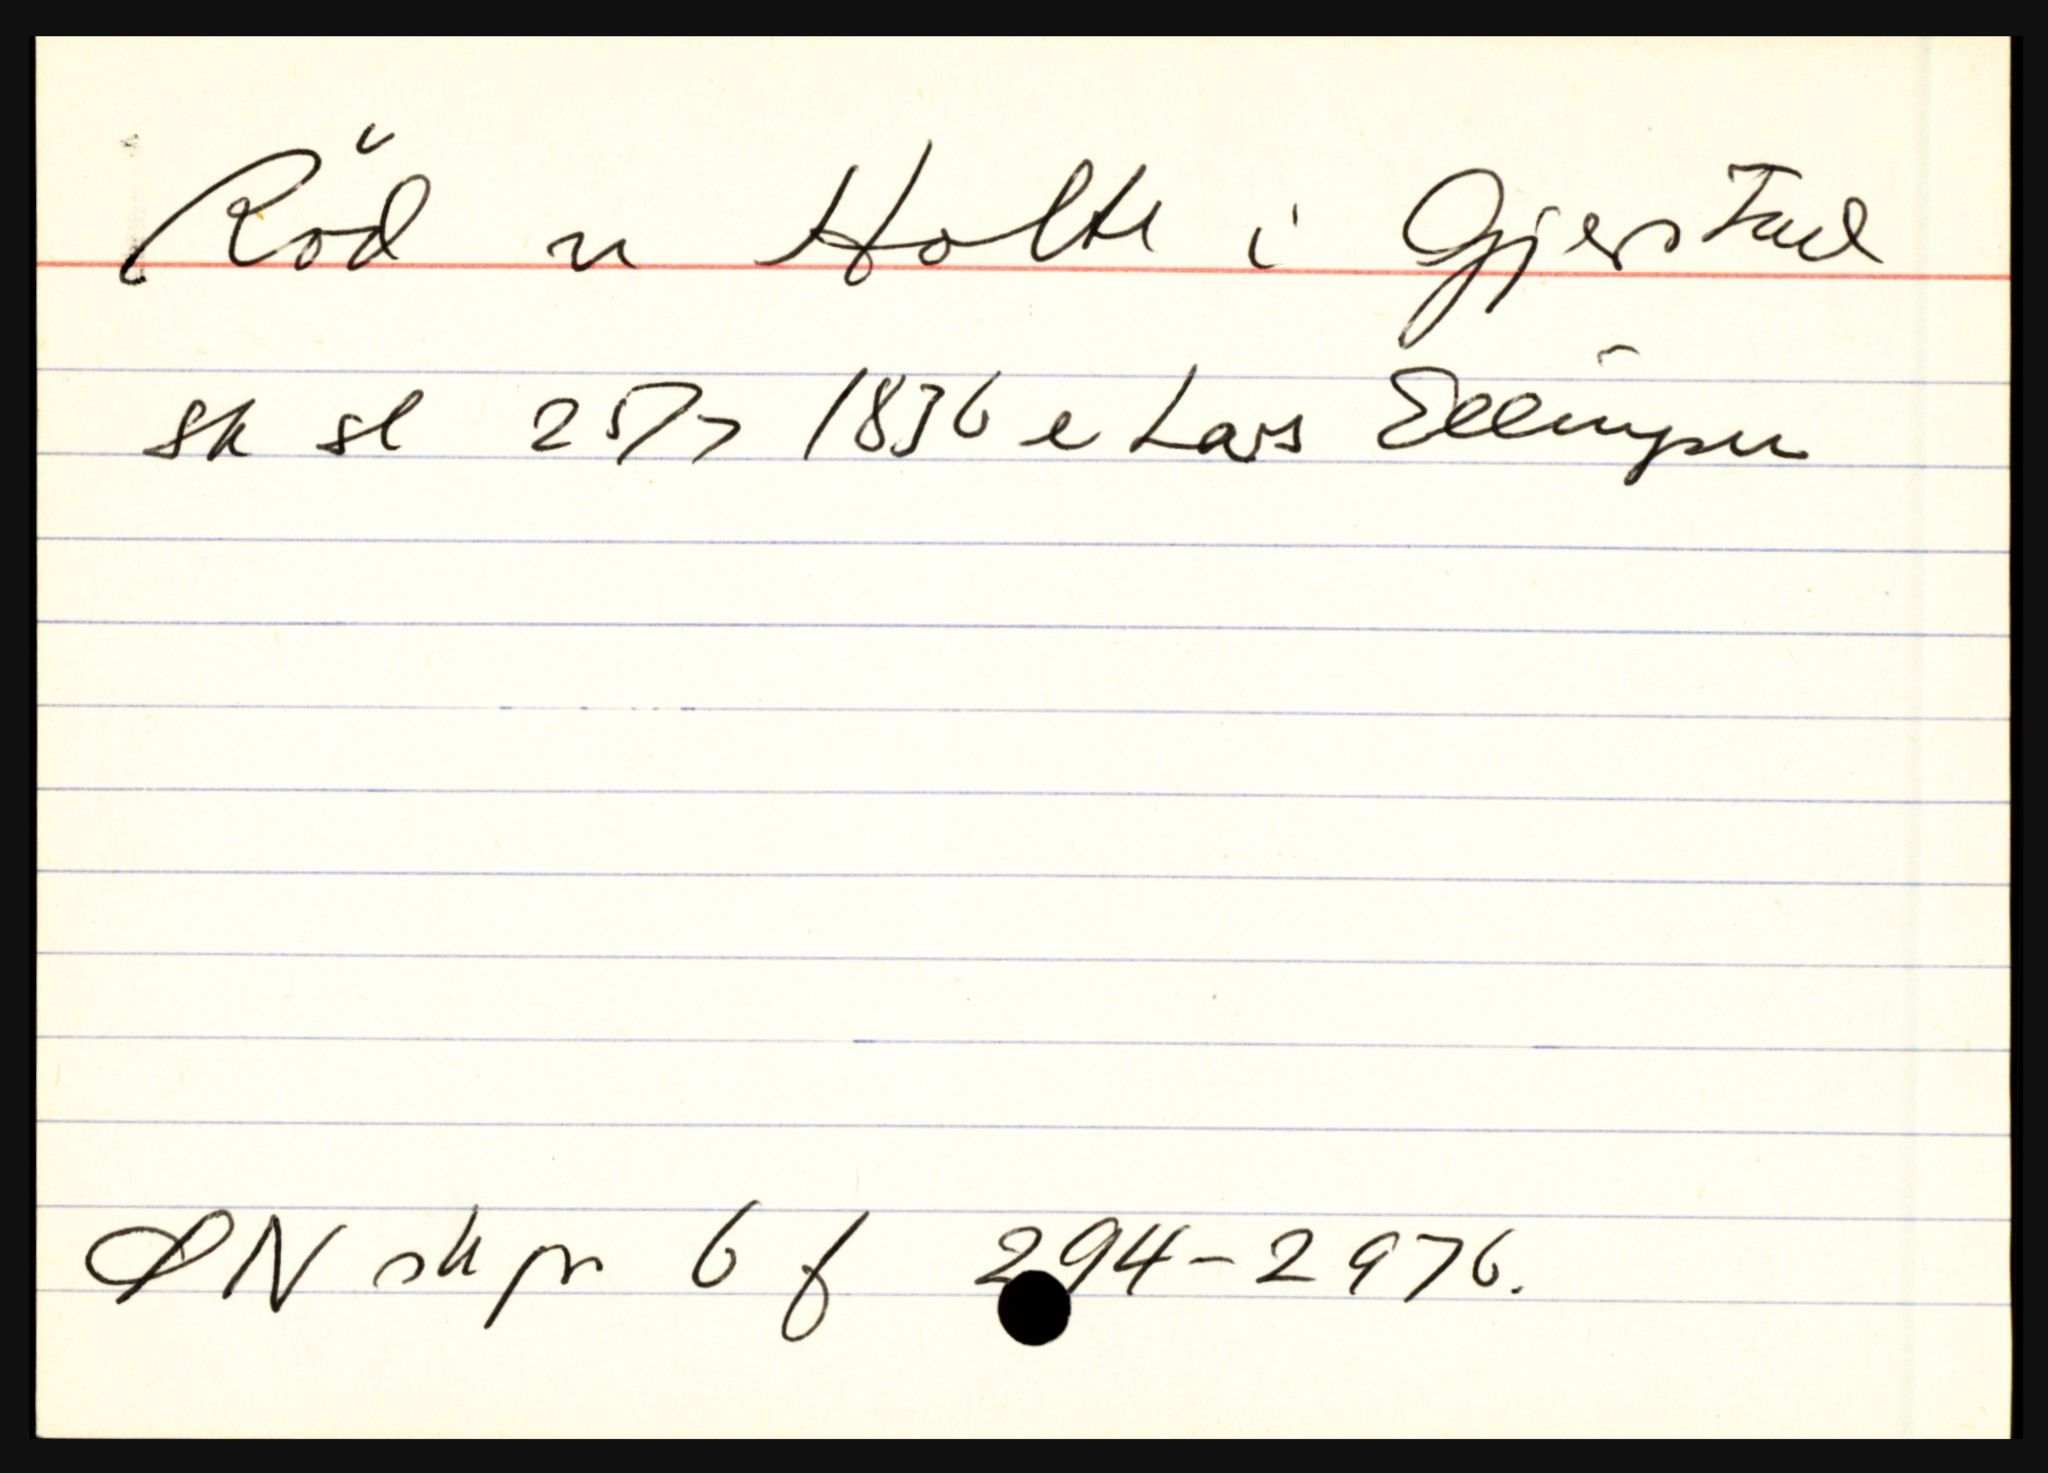 Röd u Holte i Gjerstad
sk sl 25/7 1836 e Lars Ellingsen
ØN skpr 6 f 294-297b.